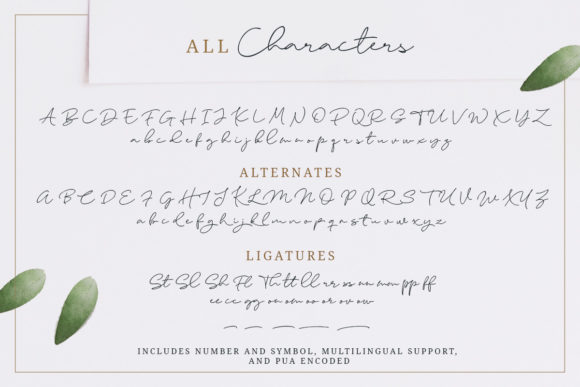 ALL Characters
A B C D E F G H I J K L M N O P Q R S T U V W X Y Z
a b c d e f g h i j k l m n o p q r s t u v w x y z
ALTERNATES
A B C D E F G H I J K L M N O P Q R S T U V W X Y Z
a b c d e f g h i j k l m n o p q r s t u v w x y z
LIGATURES
St Sl Sh Fl Th tt ll rr ss nn mm pp ff
ee cc gg on om oo or ov ow
INCLUDES NUMBER AND SYMBOL, MULTILINGUAL SUPPORT,
AND PUA ENCODED